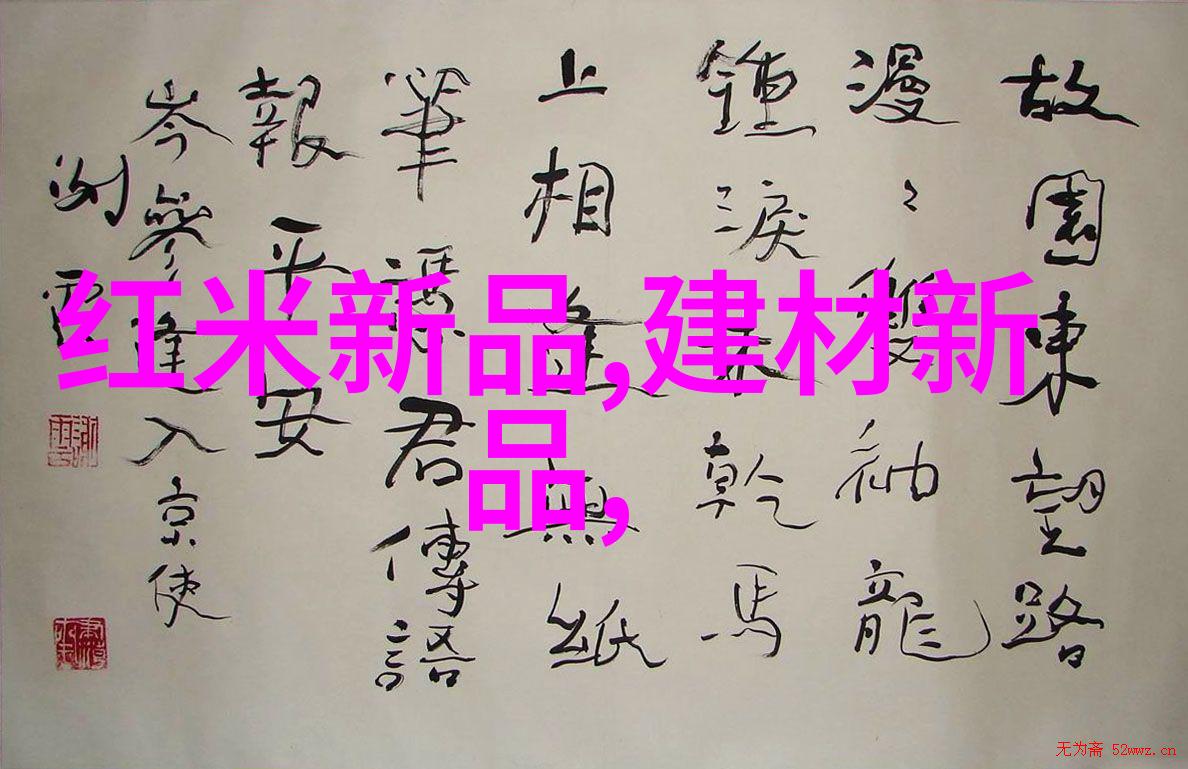 故園東望路
漫〻雙袖龍
鍾淚不乾馬
上相逢無紙
筆憑君傳語
報平安
岑參逢入京使
红米新品,建材新
品,
无为斋 52wwz.cn